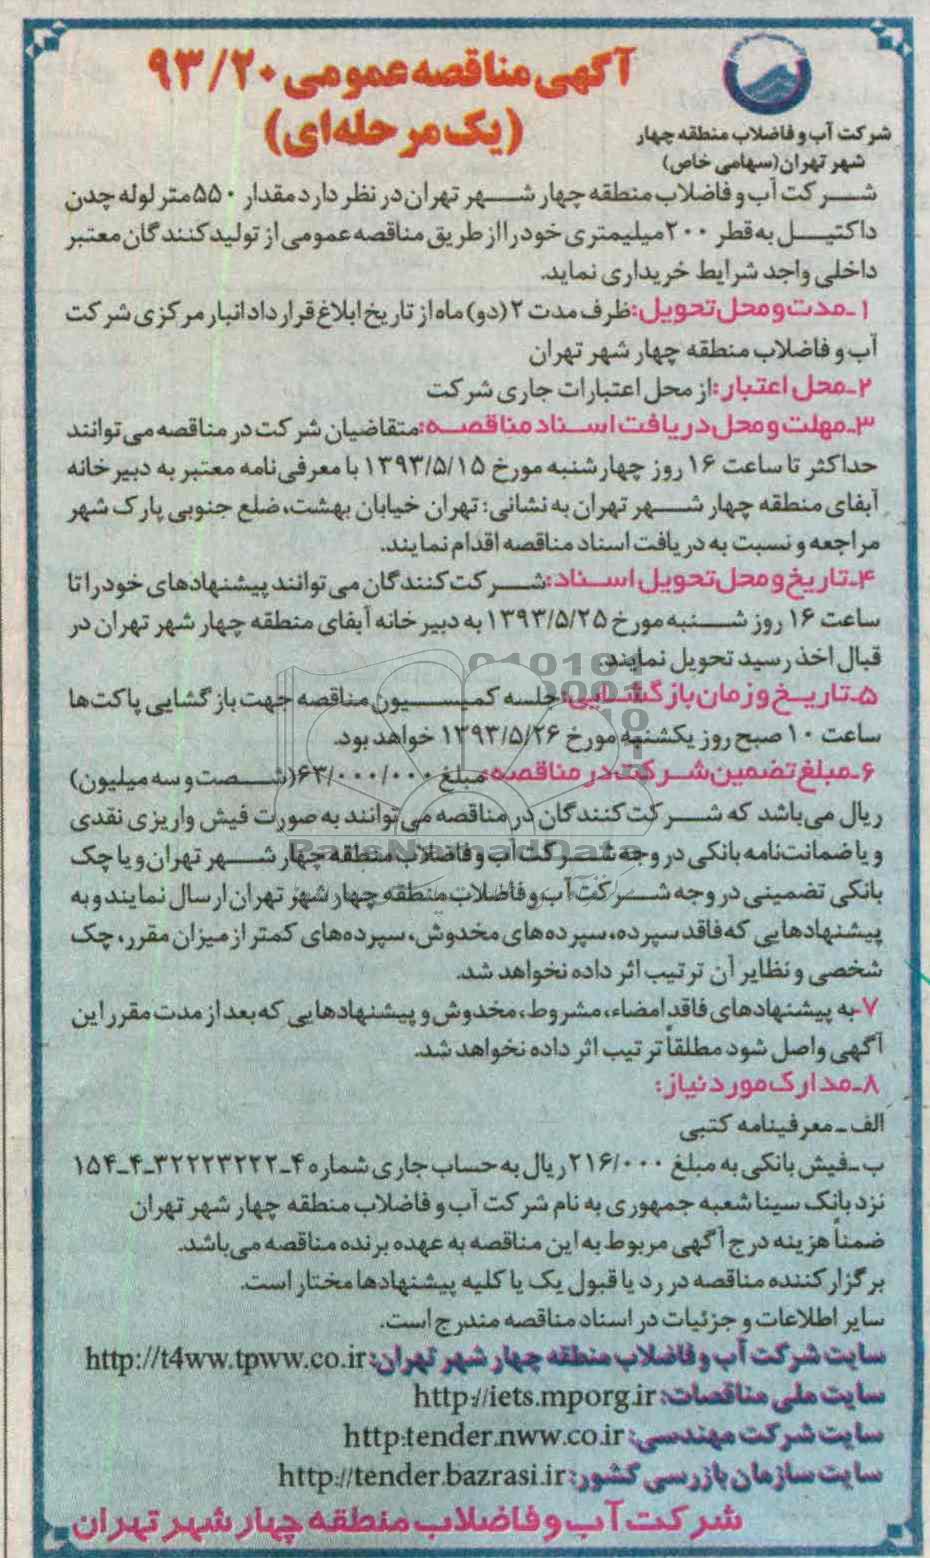 آگهی مناقصه عمومی ۹۳/۲۰
(یک مرحله‌ای)
شرکت آب و فاضلاب منطقه چهار
شهر تهران (سهامی خاص)
شرکت آب و فاضلاب منطقه چهار شهر تهران در نظر دارد مقدار ۵۵۰ متر لوله چدن
داکتیل به قطر ۲۰۰ میلیمتری خود را از طریق مناقصه عمومی از تولیدکنندگان معتبر
داخلی واجد شرایط خریداری نماید.
۱ـ مدت و محل تحویل: ظرف مدت ۲ (دو) ماه از تاریخ ابلاغ قرارداد انبار مرکزی شرکت
آب و فاضلاب منطقه چهار شهر تهران
۲ـ محل اعتبار: از محل اعتبارات جاری شرکت
۳ـ مهلت و محل دریافت اسناد مناقصه: متقاضیان شرکت در مناقصه می‌توانند
حداکثر تا ساعت ۱۶ روز چهارشنبه مورخ ۱۳۹۳/۵/۱۵ با معرفی‌نامه معتبر به دبیرخانه
آبفای منطقه چهار شهر تهران به نشانی: تهران خیابان بهشت، ضلع جنوبی پارک شهر
مراجعه و نسبت به دریافت اسناد مناقصه اقدام نمایند.
۴ـ تاریخ و محل تحویل اسناد: شرکت‌کنندگان می‌توانند پیشنهادهای خود را تا
ساعت ۱۶ روز شنبه مورخ ۱۳۹۳/۵/۲۵ به دبیرخانه آبفای منطقه چهار شهر تهران در
قبال اخذ رسید تحویل نمایند.
۵ـ تاریخ و زمان بازگشایی: جلسه کمیسیون مناقصه جهت بازگشایی پاکت‌ها
ساعت ۱۰ صبح روز یکشنبه مورخ ۱۳۹۳/۵/۲۶ خواهد بود.
۶ـ مبلغ تضمین شرکت در مناقصه: مبلغ ۶۳/۰۰۰/۰۰۰ (شصت و سه میلیون)
ریال می‌باشد که شرکت‌کنندگان در مناقصه می‌توانند به صورت فیش واریزی نقدی
و یا ضمانت‌نامه بانکی در وجه شرکت آب و فاضلاب منطقه چهار شهر تهران و یا چک
بانکی تضمینی در وجه شرکت آب و فاضلاب منطقه چهار شهر تهران ارسال نمایند و به
پیشنهادهایی که فاقد سپرده، سپرده‌های مخدوش، سپرده‌های کمتر از میزان مقرر، چک
شخصی و نظایر آن ترتیب اثر داده نخواهد شد.
۷ـ به پیشنهادهای فاقد امضاء، مشروط، مخدوش و پیشنهادهایی که بعد از مدت مقرر این
آگهی واصل شود مطلقاً ترتیب اثر داده نخواهد شد.
۸ـ مدارک مورد نیاز:
الف ـ معرفینامه کتبی
ب ـ فیش بانکی به مبلغ ۲۱۶/۰۰۰ ریال به حساب جاری شماره ۴ـ۳۲۲۲۳۲۲۲ـ۴ـ۱۵۴
نزد بانک سینا شعبه جمهوری به نام شرکت آب و فاضلاب منطقه چهار شهر تهران
ضمناً هزینه درج آگهی مربوط به این مناقصه به عهده برنده مناقصه می‌باشد.
برگزارکننده مناقصه در رد یا قبول یک یا کلیه پیشنهادها مختار است.
سایر اطلاعات و جزئیات در اسناد مناقصه مندرج است.
سایت شرکت آب و فاضلاب منطقه چهار شهر تهران: http://t4ww.tpww.co.ir
سایت ملی مناقصات: http://iets.mporg.ir
سایت شرکت مهندسی: http:tender.nww.co.ir
سایت سازمان بازرسی کشور: http://tender.bazrasi.ir
شرکت آب و فاضلاب منطقه چهار شهر تهران
ParsNamadData